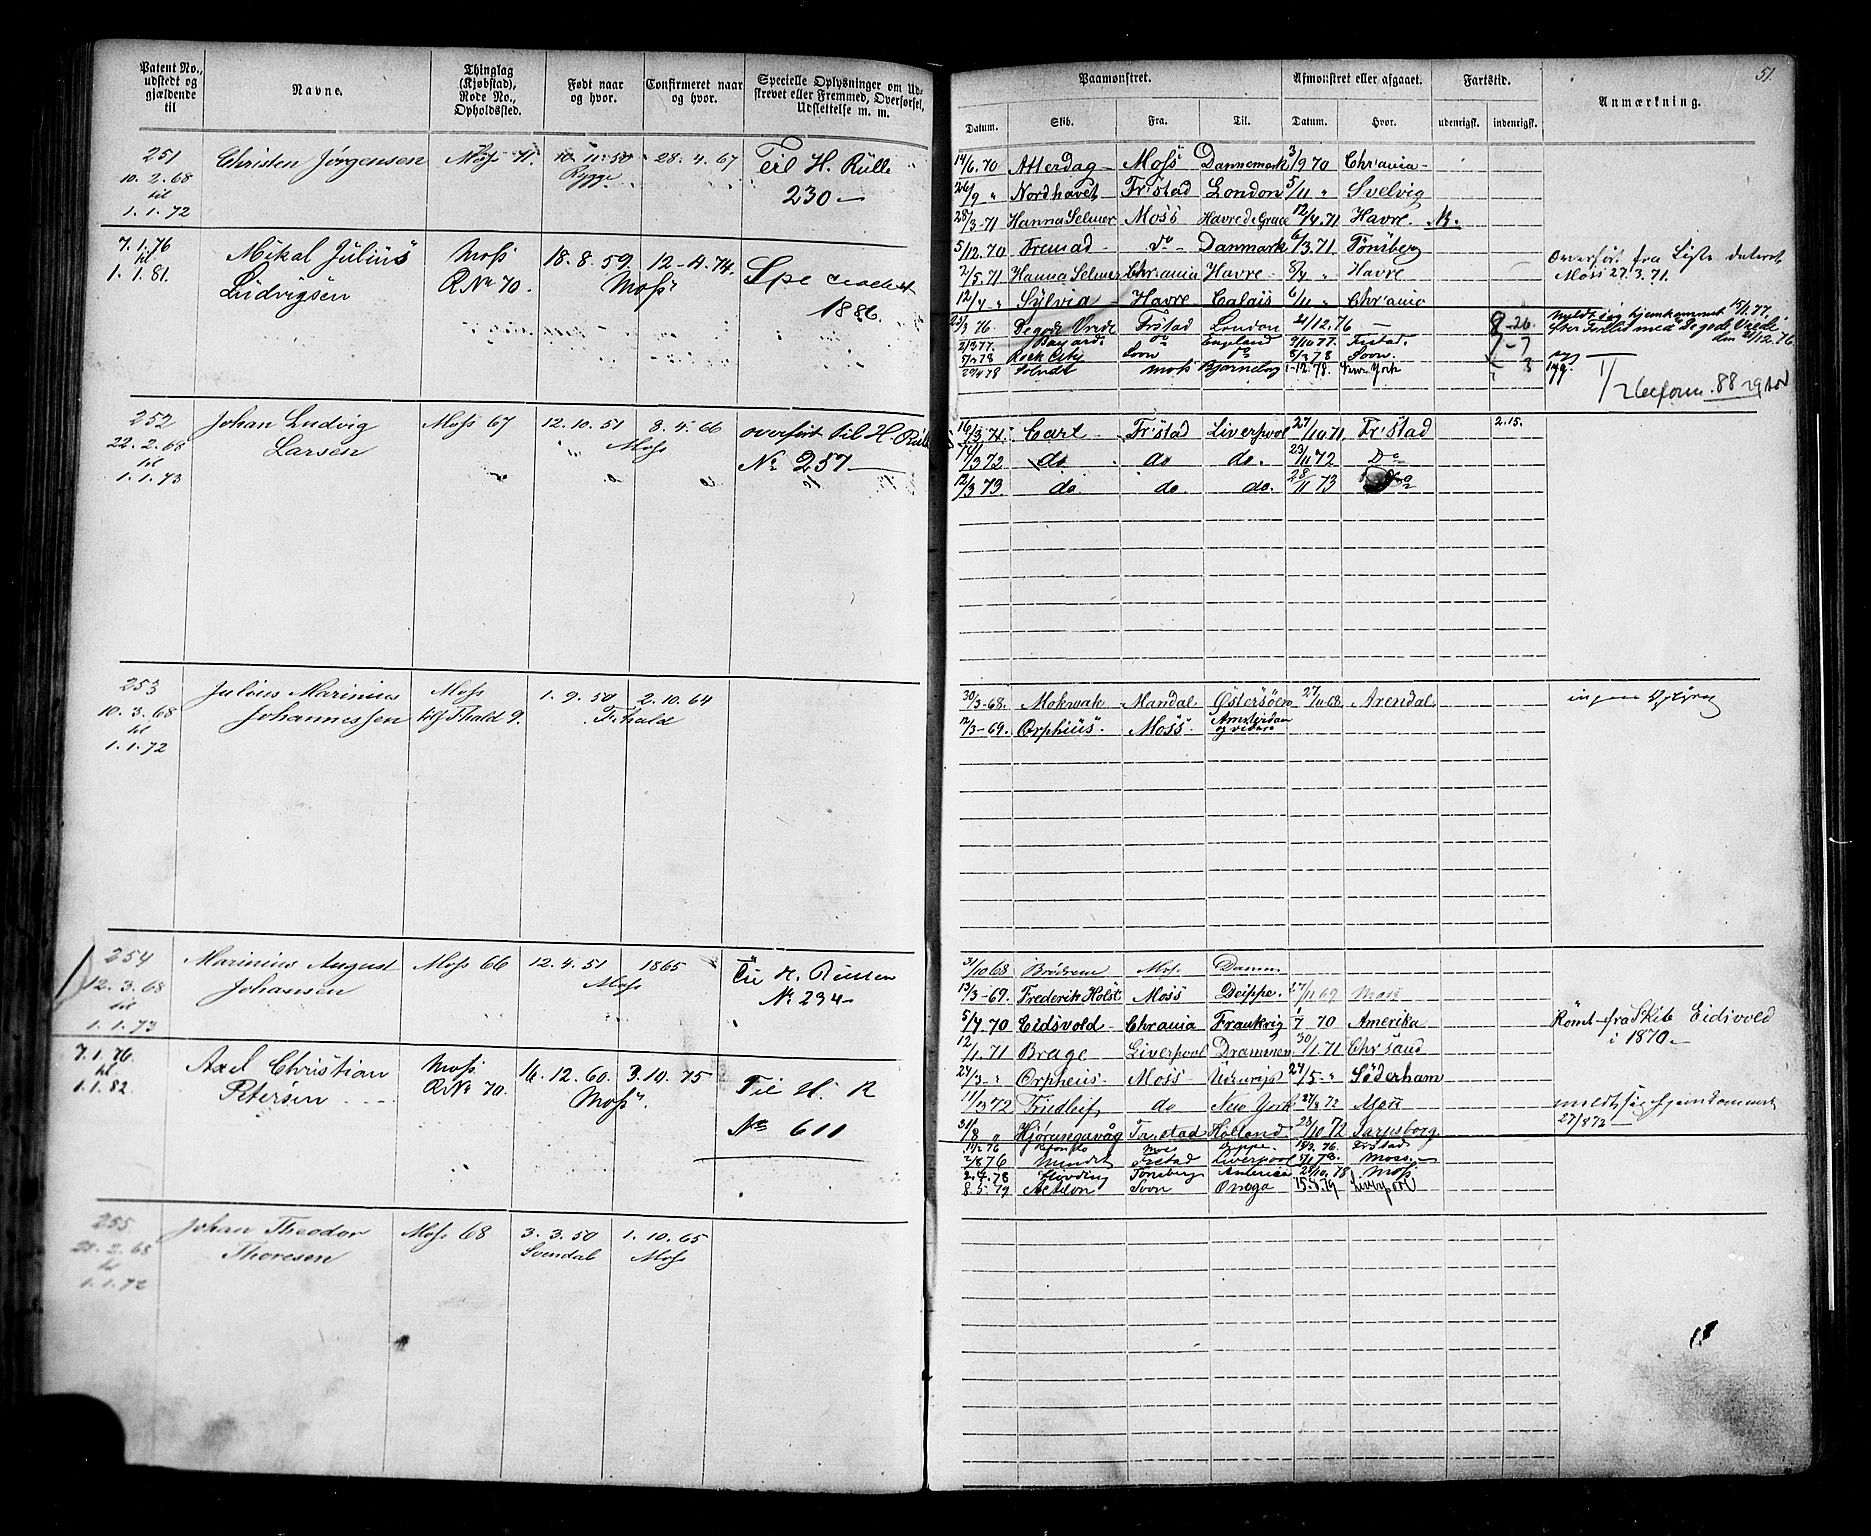 Patent No., udstedt og gjældende til
Navne.
Thinglag (Kjøbstad), Rode No., Opholdssted.
Født naar og hvor.
Confirmeret naar og hvor.
Specielle Oplysninger om Udskrevet eller Fremmed, Overførsel, Udslettelse m. m.
Paamønstret.
Afmønstret eller afgaaet.
Fartstid.
Anmærkning.
51.
Datum.
Skib.
Fra.
Til.
Datum.
Hvor.
udenrigsk.
indenrigsk.
251 Christen Jørgensen Moss 71. 10. 11. 50 28. 4. 67 Til H. Rulle
10. 2. 68 Rygge 230
til
1. 1. 72
14/6. 70 Atterdag Moss Dannemark 3/9 70 Chr'ania
26/9 " Nordhavet Fr'stad London 5/11 " Svelvig
28/3-71 Hanna Selmer Moss Havre de Grace 12/4.71 Havre
7. 1. 76 Mikal Julius Moss 18. 8. 59 12-4.74.
til Ludvigsen R No 70. Moss
1. 1. 81. 1886.
5/12. 70 Fremad do Danmark 6/3. 71 Tønsberg
2/5.71 Hanna Selmer Chr'ania Havre 8/7 " Havre
12/7 " Sylvia Havre Calais 6/11 " Chr'ania
Overført fra Liste dateret
Moss 27. 3. 71.
76. De gode Venner Fr'stad London 21/12. 76
Bayard do England 77. Fr'stad.
78 Rock City Soon do 78 Soon.
Moss 78. New York
252 Johan Ludvig Moss 67 12. 10. 51 8. 4. 66 overført til H. Rull
22. 2. 68 Larsen Moss No 257
til
1. 1. 73
16/3.71. Carl Fr'stad Liverpool 27/10 71 Fr'stad 2. 15.
/3 72 do do do. 23/11 72 Do
12/3 73. do do. do. 28/11 73
253 Julius Marinius Moss 1. 9. 50 2. 10. 64
10. 3. 68 Johannessen Fr.hald
til
1. 1. 72
30/3-68. Mokwak Mandal Østersøen 27/11-68 Arendal
12/3-69. Orpheus. Moss. Amsterdam
og videre
254 Marinius August Moss 66 12. 4. 51 1865 Til H. Rullen
12. 3. 68 Johansen Moss No 234
til
1. 1. 73
31/10 68 Brødrene Moss
13/3-69. Frederik Holst Moss Deippe. 27/11 69 Moss
5/4. 70 Eidsvold Chrania Frankrig 7 70 Amerika
Rømt fra Skib Eidsvold
i 1870
12/1.71 Brage Liverpool Drammen 30/1.71 Chr'sand
27/3-" Orpheus Moss Udenrigs 27/5-" Söderham
11/3 72 Fridleif do New York 27/8 72 Moss
meldt sig hjemkommet
27/8 72
31/8 " Hjørungavåg Fr.stad Holland 23/10 72 Sarpsborg
7. 1. 76 Axel Christian Moss 16. 12. 60. 3. 10. 75 Til H. R
til Petersen R No 70. Moss. No 611
1. 1. 82.
76 Fr'stad Liverpool Moss
2. 4. 78 Tønsberg 78 Moss
8. 5. 79 Soon Onega 79 Liverpool
255 Johan Theodor Moss 68 3. 3. 50 1. 10. 65
2. 68 Thoresen Svendal Moss
til
1. 1. 72